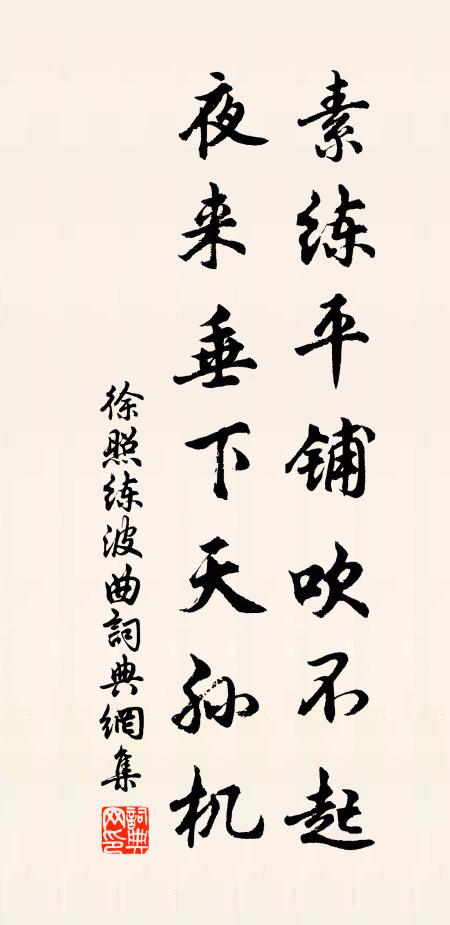 素练平铺吹不起
夜来垂下天孙机
徐照练波曲詞典網集
詞典
网印